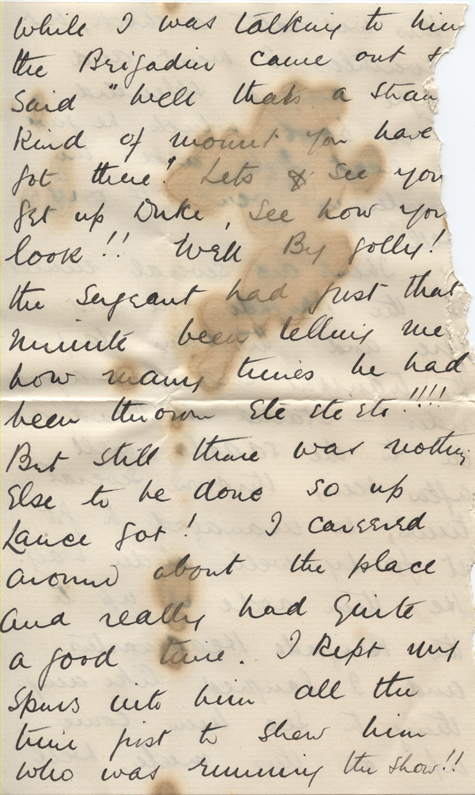 while I was talking to him
the Brigadier came out &
said "Well thats a stran
kind of mount you have
got there". Lets & see you
get up Duke, see how you
look!! Well By golly!
the Sergeant had just that
minute been telling me
how many times he had
been thrown Etc etc etc!!!!
But still there was nothing
Else to be done so up
Lance got! I careered
around about the place
and really had Quite
a good time. I kept my
spurs into him all the
time just to shew him
who was running the show!!